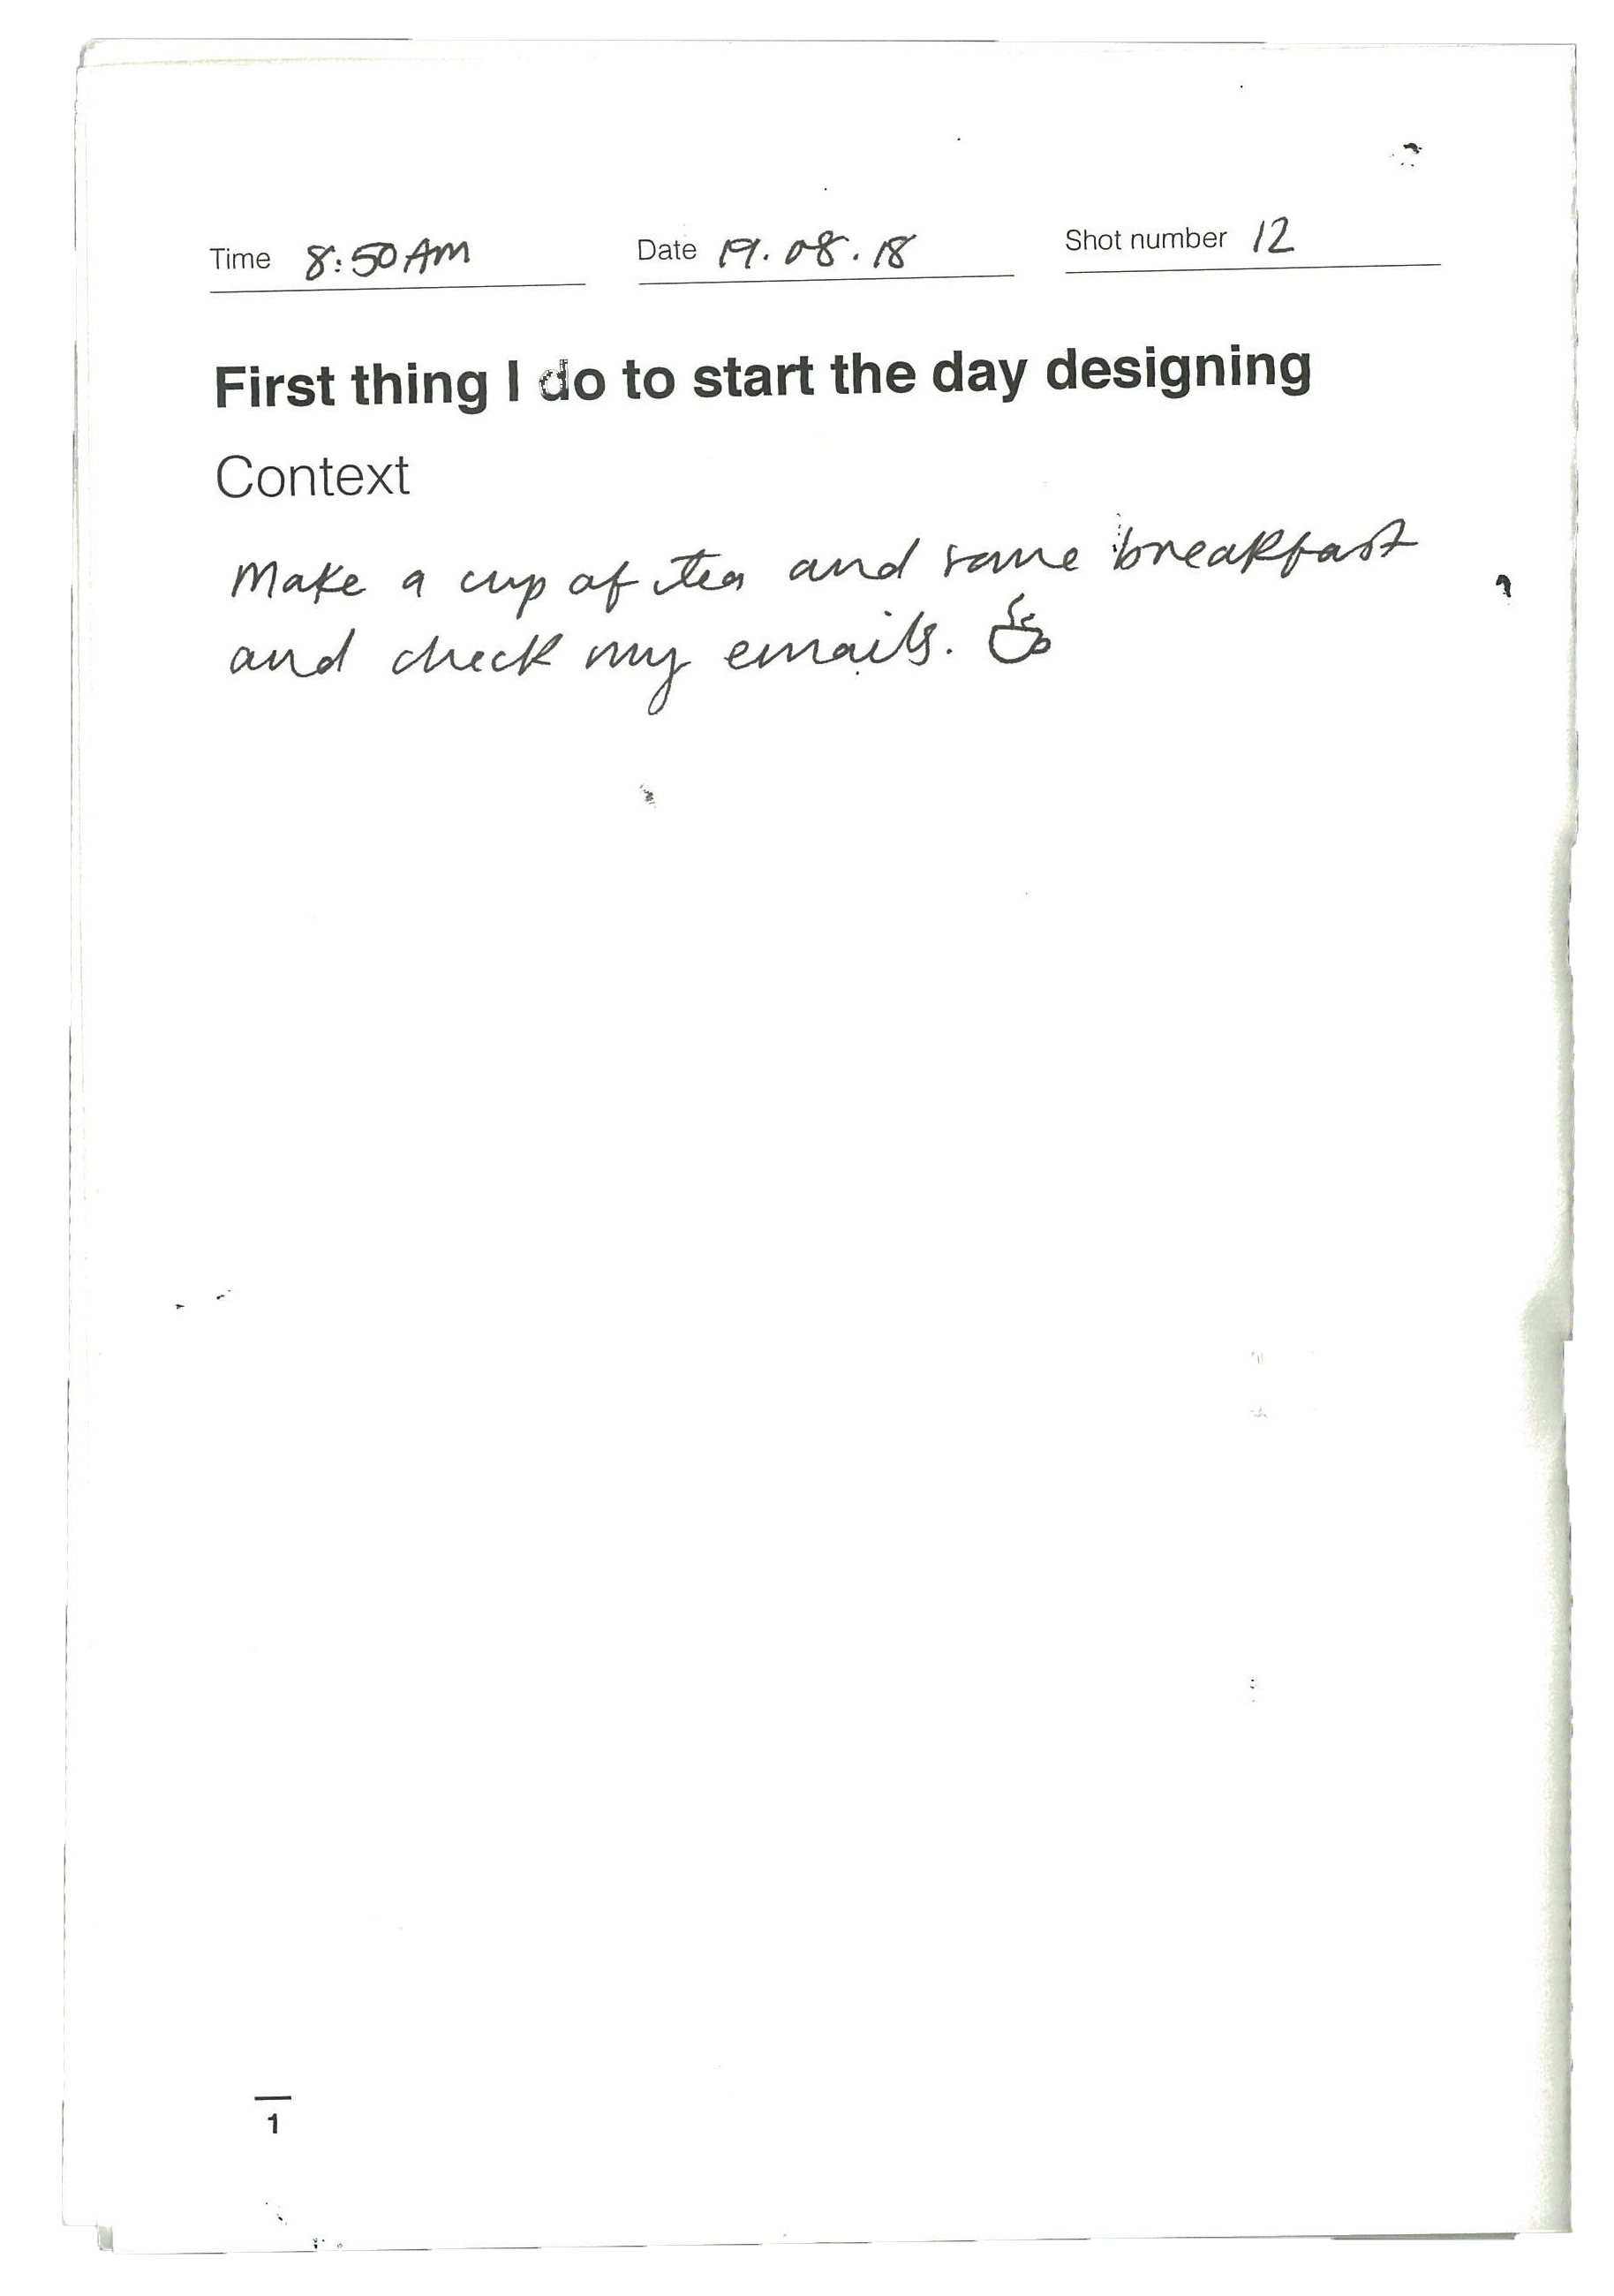 Time 8:50AM Date 19.08.18 Shot number 12
First thing I do to start the day designing
Context
Make a cup of tea and some breakfast
and check my emails.
1